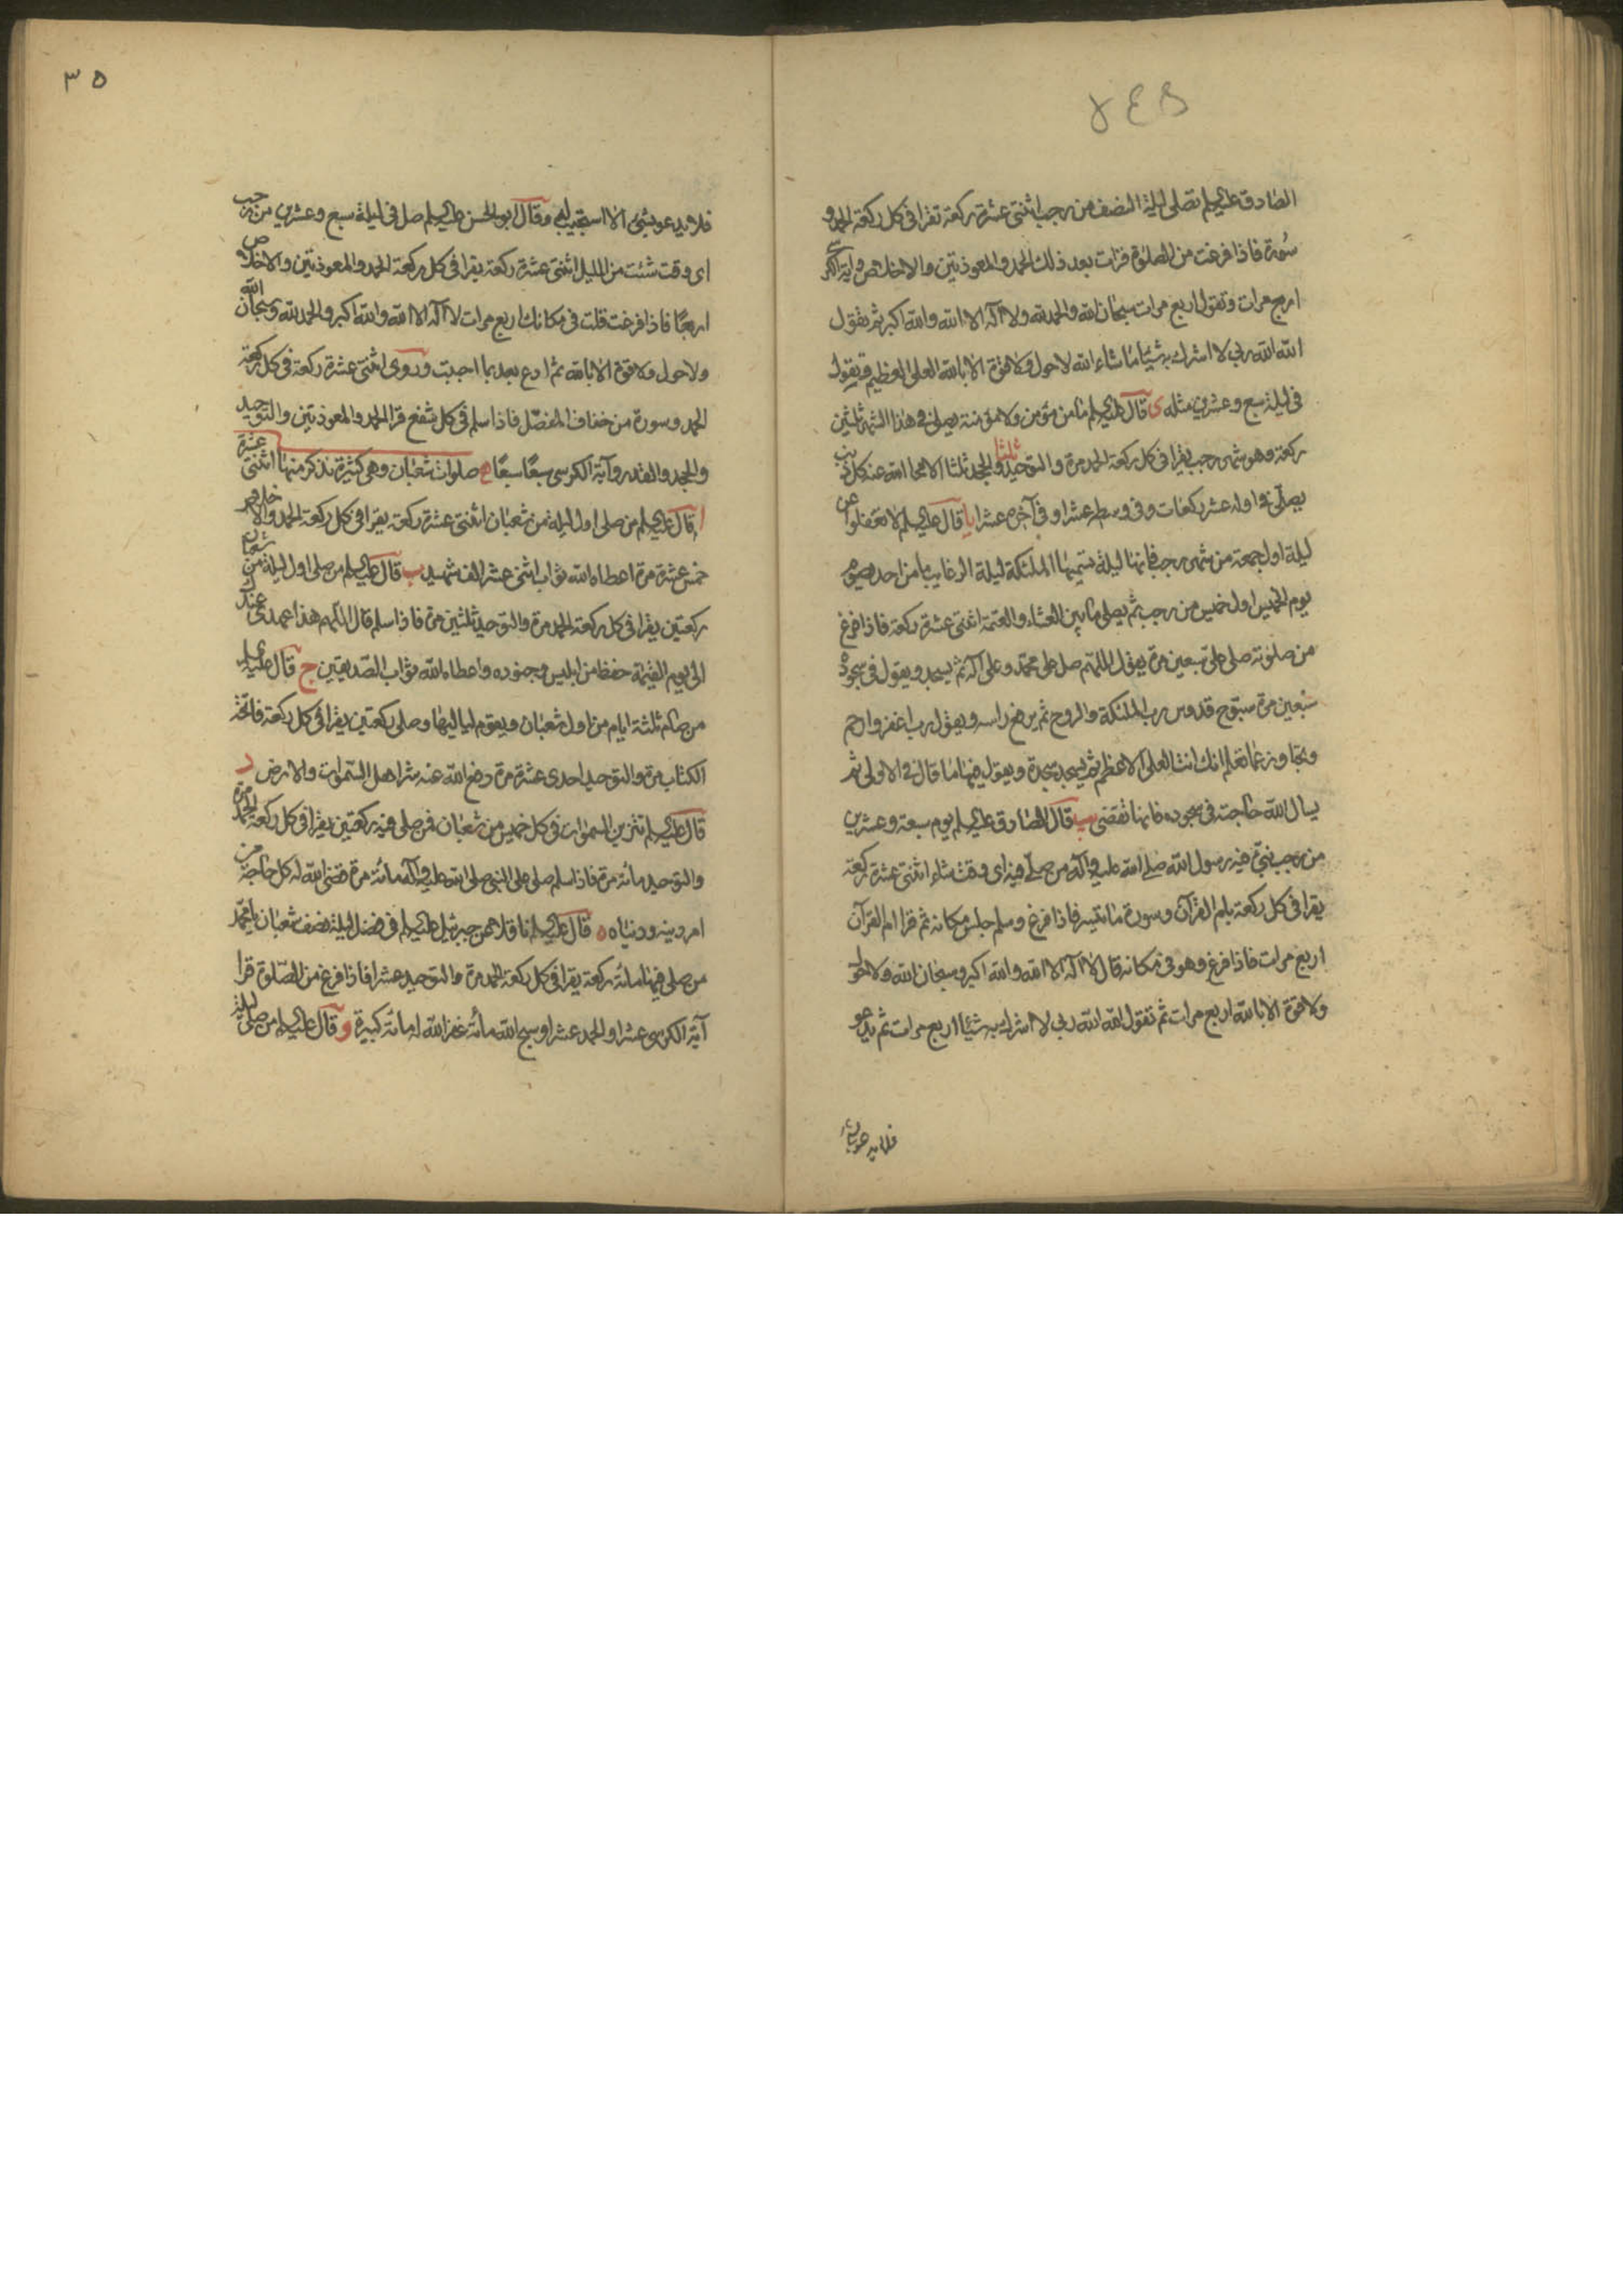 الصادق عليه السلام تصلى ليلة النصف من رجب اثنتى عشرة ركعة تقرا فى كل ركعة الحمد و
سورة فاذا فرغت من الصلوة قرات بعد ذلك الحمد والمعوذتين والاخلاص وآية الكرسى
اربع مرات وتقول اربع مرات سبحان الله والحمد لله ولا اله الا الله والله اكبر ثم تقول
الله الله ربى لا اشرك به شيئا ما شاء الله لا حول ولا قوة الا بالله العلى العظيم وتقول
فى ليلة سبع وعشرين مثله ى قال عليه السلام ما من مؤمن ولا مؤمنة يصلى فى هذا الشهر ثلثين
ركعة وهو شهر رجب يقرا فى كل ركعة الحمد مرة والتوحيد ثلثا والجحد ثلثا الا محا الله عنه كل ذنب
يصلى فى اوله عشر ركعات وفى وسطه عشرا وفى آخره عشرا يا قال عليه السلام لا تغفلوا عن
ليلة اول جمعة من شهر رجب فانها ليلة تسميها الملئكة ليلة الرغايب ما من احد يصوم
يوم الخميس اول خميس من رجب ثم يصلى ما بين العشاء والعتمة اثنتى عشرة ركعة فاذا فرغ
من صلوته صلى على سبعين مرة يقول اللهم صل على محمد وعلى اله ثم يسجد ويقول فى سجوده
سبعين مرة سبوح قدوس رب الملئكة والروح ثم يرفع راسه ويقول رب اغفر وارحم
وتجاوز عما تعلم انك انت العلى الاعظم ثم يسجد سجدة ويقول فيها ما قال فى الاولى ثم
يسال الله حاجته فى سجوده فانها تقضى يب قال الصادق عليه السلام يوم سبعة وعشرين
من رجب نبئ فيه رسول الله صلى الله عليه وآله من صلى فيه اى وقت شاء اثنتى عشرة ركعة
يقرا فى كل ركعة بام القرآن وسورة ما تيسر فاذا فرغ وسلم جلس مكانه ثم قرا ام القرآن
اربع مرات فاذا فرغ وهو فى مكانه قال لا اله الا الله والله اكبر وسبحان الله ولا حول
ولا قوة الا بالله اربع مرات ثم تقول الله الله ربى لا اشرك به شيئا اربع مرات ثم يدعو
فلا يدعو بشئ
٣٥
فلا يدعو بشئ الا استجيب له وقال ابو الحسن عليه السلام صل فى ليلة سبع وعشرين من رجب
اى وقت شئت من الليل اثنتى عشرة ركعة يقرا فى كل ركعة الحمد والمعوذتين والاخلاص
اربعا فاذا فرغت قلت فى مكانك اربع مرات لا اله الا الله والله اكبر والحمد لله وسبحان الله
ولا حول ولا قوة الا بالله ثم ادع بعد بما احببت وروى اثنتى عشرة ركعة فى كل ركعة
الحمد وسورة من خفاف المفصل فاذا سلم فى كل شفع قرا الحمد والمعوذتين والتوحيد
والجحد والقدر وآية الكرسى سبعا سبعا ه صلوات شعبان وهى كثيرة نذكر منها اثنتى عشرة
ا قال عليه السلام من صلى اول ليلة من شعبان اثنتى عشرة ركعة يقرا فى كل ركعة الحمد والاخلاص
خمس عشرة مرة اعطاه الله ثواب اثنى عشر الف شهيد ب قال عليه السلام من صلى اول ليلة من شعبان
ركعتين يقرا فى كل ركعة الحمد مرة والتوحيد ثلثين مرة فاذا سلم قال اللهم هذا عهدى عندك
الى يوم القيمة حفظ من ابليس وجنوده واعطاه الله ثواب الصديقين ج قال عليه السلام
من صام ثلثة ايام من اول شعبان ويقوم لياليها وصلى ركعتين يقرا فى كل ركعة فاتحة
الكتاب مرة والتوحيد احدى عشرة مرة دفع الله عنه شر اهل السموات والارض د
قال عليه السلام تتزين السموات فى كل خميس من شعبان فمن صلى فيه ركعتين يقرا فى كل ركعة الحمد مرة
والتوحيد مائة مرة فاذا سلم صلى على النبى صلى الله عليه وآله مائة مرة قضى الله له كل حاجة من
امر دينه ودنياه ه قال عليه السلام ناقلا عن جبرئيل عليه السلام فى فضل ليلة نصف شعبان يا محمد
من صلى فيها مائة ركعة يقرا فى كل ركعة الحمد مرة والتوحيد عشرا فاذا فرغ من الصلوة قرا
آية الكرسى عشرا والحمد عشرا وسبح الله مائة غفر الله له مائة كبيرة و قال عليه السلام من صلى ليلة